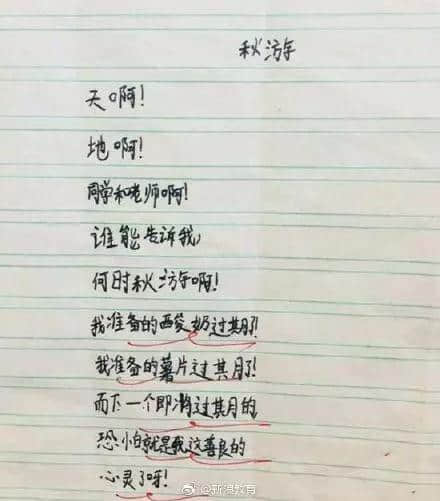 秋游
天啊!
地啊!
同学和老师啊!
谁能告诉我,
何时秋游啊!
我准备的酸奶过期了!
我准备的薯片过期了!
而下一个即将过期的
恐怕就是我这善良的
心灵了呀!
@新浪教育